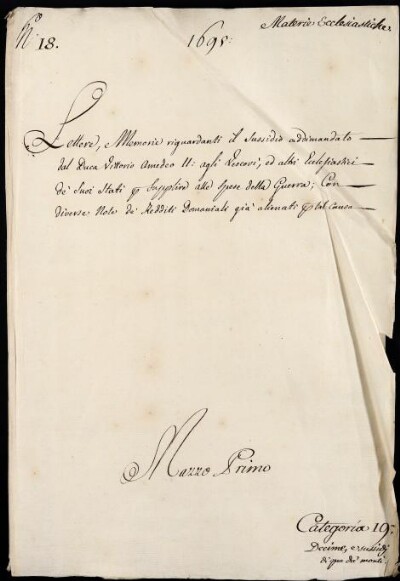 Materie Ecclesiastiche
N.º 18.
1695:
Lettere, e Memorie riguardanti il Sussidio addimandato
dal Duca Vittorio Amedeo II: agli Vescovi, ed altri Eclesiastici
de' Suoi Stati p Supplire alle Spese della Guerra; Con
diverse Note de' Redditi Demaniali già alienati p tal causa
Mazzo Primo
Categoria 19:
Decime, e sussidj
di qua da' monti.